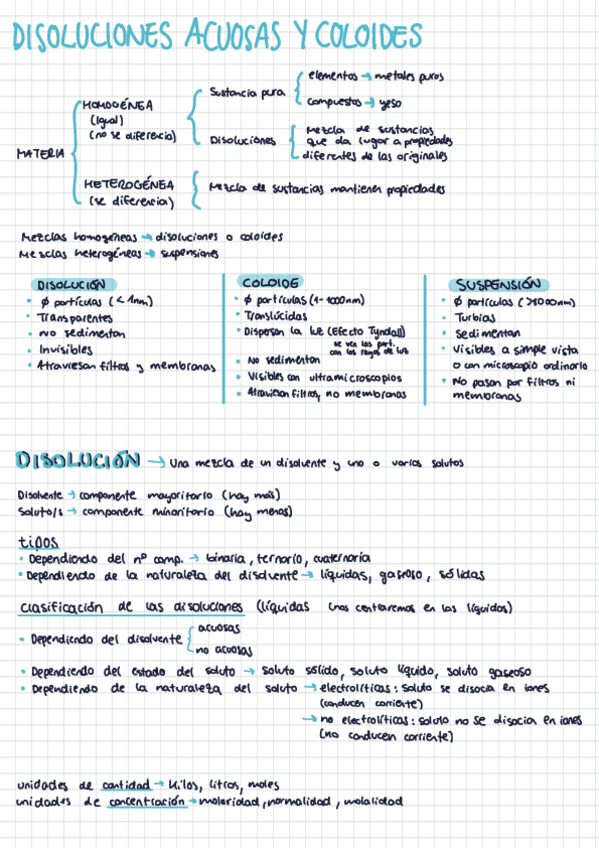 DISOLUCIONES ACUOSAS Y COLOIDES
MATERIA
HOMOGÉNEA
(Igual)
(no se diferencia)
Sustancia pura
elementos → metales puros
compuestos → yeso
Disoluciones
Mezcla de sustancias
que da lugar a propiedades
diferentes de las originales
HETEROGÉNEA
(se diferencia)
Mezcla de sustancias mantienen propiedades
Mezclas homogéneas → disoluciones o coloides
Mezclas heterogéneas → suspensiones
DISOLUCIÓN
• ϕ partículas (< 1nm)
• Transparentes
• no sedimentan
• Invisibles
• Atraviesan filtros y membranas
COLOIDE
• ϕ partículas (1-1000nm)
• Translúcidas
• Dispersan la luz (Efecto Tyndall)
se ven las part.
con los rayos de luz
• No sedimentan
• Visibles con ultramicroscopios
• Atraviesan filtros, no membranas
SUSPENSIÓN
• ϕ partículas (>1000nm)
• Turbias
• Sedimentan
• Visibles a simple vista
o con microscopio ordinario
• No pasan por filtros ni
membranas
DISOLUCIÓN → Una mezcla de un disolvente y uno o varios solutos
Disolvente → componente mayoritario (hay más)
Soluto/s → componente minoritario (hay menos)
tipos
• Dependiendo del nº comp. → binaria, ternario, cuaternaria
• Dependiendo de la naturaleza del disolvente → líquidas, gaseoso, sólidas
clasificación de las disoluciones (líquidas (nos centraremos en las líquidos)
• Dependiendo del disolvente
acuosas
no acuosas
• Dependiendo del estado del soluto → soluto sólido, soluto líquido, soluto gaseoso
• Dependiendo de la naturaleza del soluto → electrolíticas: soluto se disocia en iones
(conducen corriente)
→ no electrolíticas: soluto no se disocia en iones
(no conducen corriente)
unidades de cantidad → kilos, litros, moles
unidades de concentración → molaridad, normalidad, molalidad